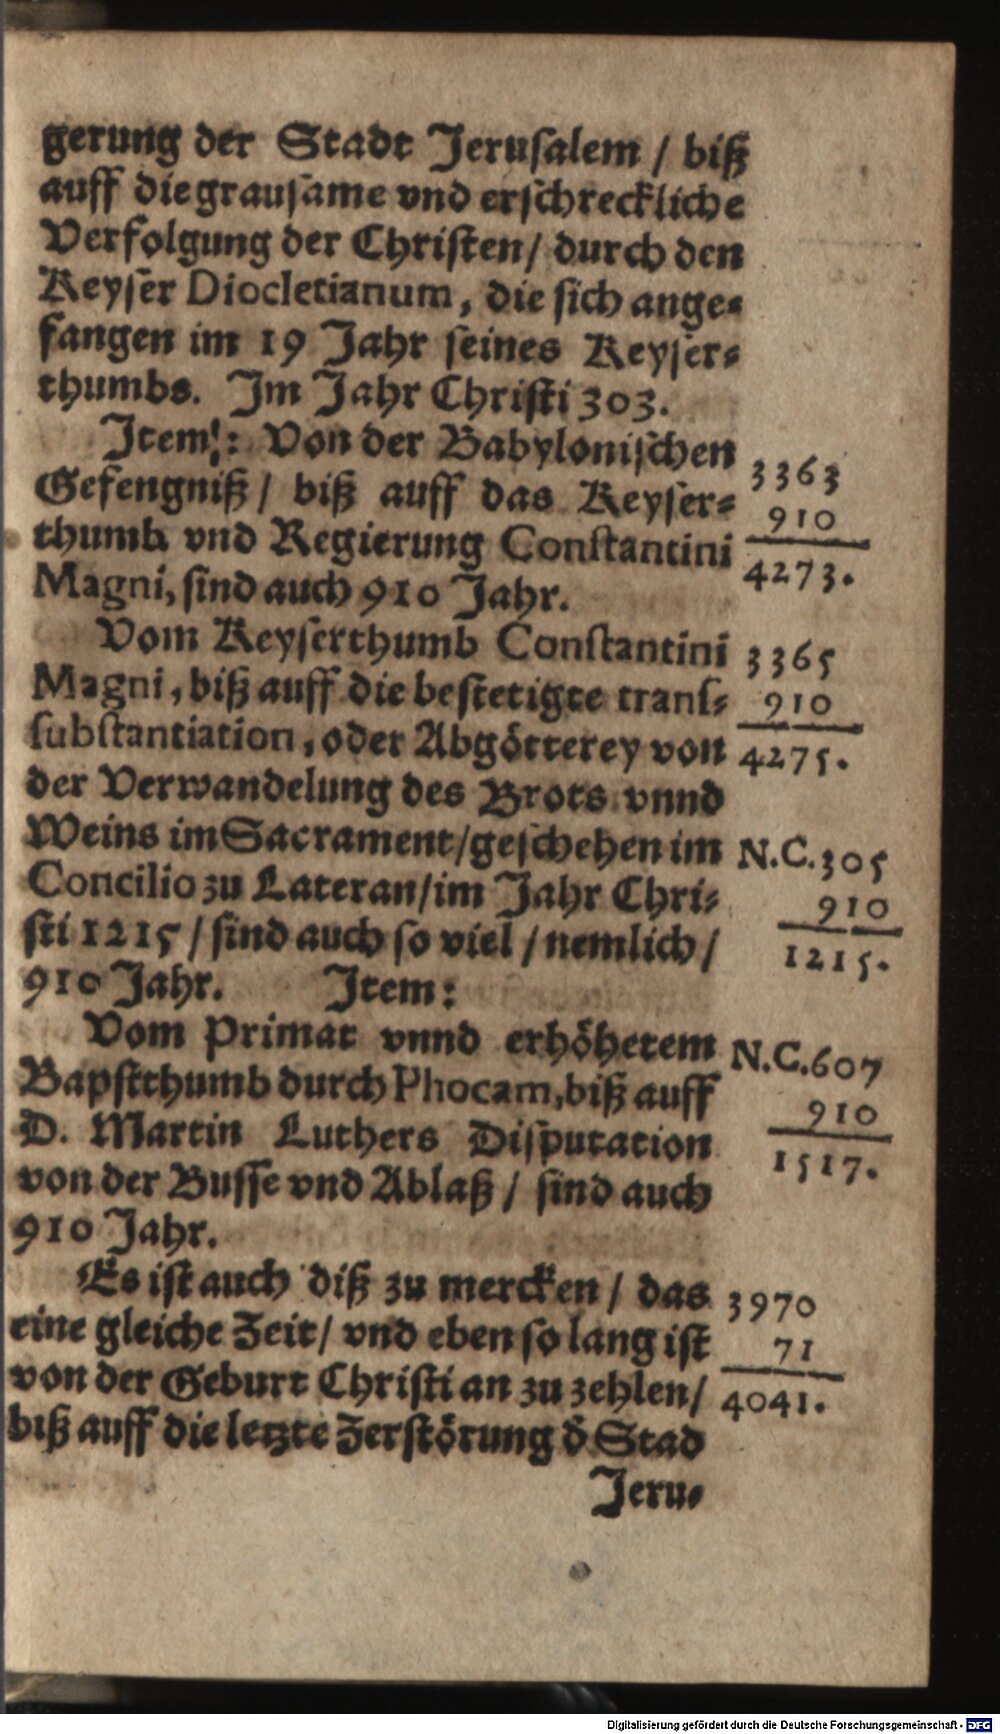 gerung der Stadt Jerusalem / biß
auff die grausame vnd erschreckliche
Verfolgung der Christen / durch den
Keyser Diocletianum, die sich ange-
fangen im 19 Jahr seines Keyser-
thumbs. Im Jahr Christi 303.
Item!: Von der Babylonischen
Gefengniß / biß auff das Keyser-
thumb vnd Regierung Constantini
Magni, sind auch 910 Jahr.
3363
910
4273.
Vom Keyserthumb Constantini
Magni, biß auff die bestetigte trans-
substantiation, oder Abgötterey von
der Verwandelung des Brots vnnd
Weins im Sacrament / geschehen im
Concilio zu Lateran / im Jahr Chri-
sti 1215 / sind auch so viel / nemlich /
910 Jahr. Item:
3365
910
4275.
N.C.305
910
1215.
Vom Primat vnnd erhöhetem
Bapstthumb durch Phocam, biß auff
D. Martin Luthers Disputation
von der Busse vnd Ablaß / sind auch
910 Jahr.
N.C.607
910
1517.
Es ist auch diß zu mercken / das
eine gleiche Zeit / vnd eben so lang ist
von der Geburt Christi an zu zehlen /
biß auff die letzte Zerstörung d̄ Stad
3970
71
4041.
Jeru-
Digitalisierung gefördert durch die Deutsche Forschungsgemeinschaft - DFG